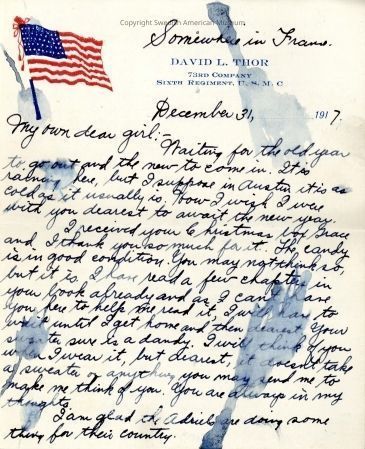 Copyright Swedish American Museum
Somewhere in France.
DAVID L. THOR
73RD COMPANY
SIXTH REGIMENT, U. S. M. C
December 31, 1917.
My own dear girl:-
Waiting for the old year
to go out and the new to come in. It is
raining here, but I suppose in Austin it is as
cold as it usually is. How I wish I were
with you dearest to await the new year.
I received your Christmas box Grace
and I thank you so much for it. The candy
is in good condition. You may not think so,
but it is. I have read a few chapters in
your book already and as I can't have
you here to help me read it, I will have to
wait until I get home and then dearest. Your
sweater sure is a dandy. I will think of you
when I wear it, but dearest, it doesn't take
a sweater or anything you may send me to
make me think of you. You are always in my
thoughts.
I am glad the Adriels are doing some
thing for their country.